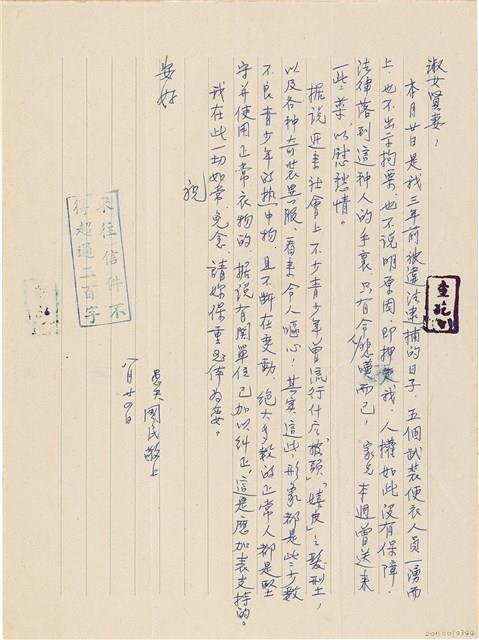 淑女賢妻：
本月廿日是我三年前被違法逮捕的日子，五個武裝便衣人員一湧而
上，也不出示拘票，也不說明原因，即押走我，人權如此沒有保障，
法律落到這種人的手裏，只有令人嘆而已，家兄本週曾送來
一些菜，以慰愁情。
據說近來社會上不少青少年曾流行什么「披頭」、「嬉皮」之髮型，
以及各種奇裝異服，看來令人嘔心，其實這些形象都是些少數
不良青少年的热中物，且不断在变動，绝大多数的正常人都是堅
守并使用正常衣物的，据说有関單位已加以糾正，這是應加表支持的。
我在此一切如常，免念，請妳保重玉体為要。
祝
安好
愚夫 國民敬上
八月廿日
來往信件不
得超過二百字
查訖
2011.001.0344